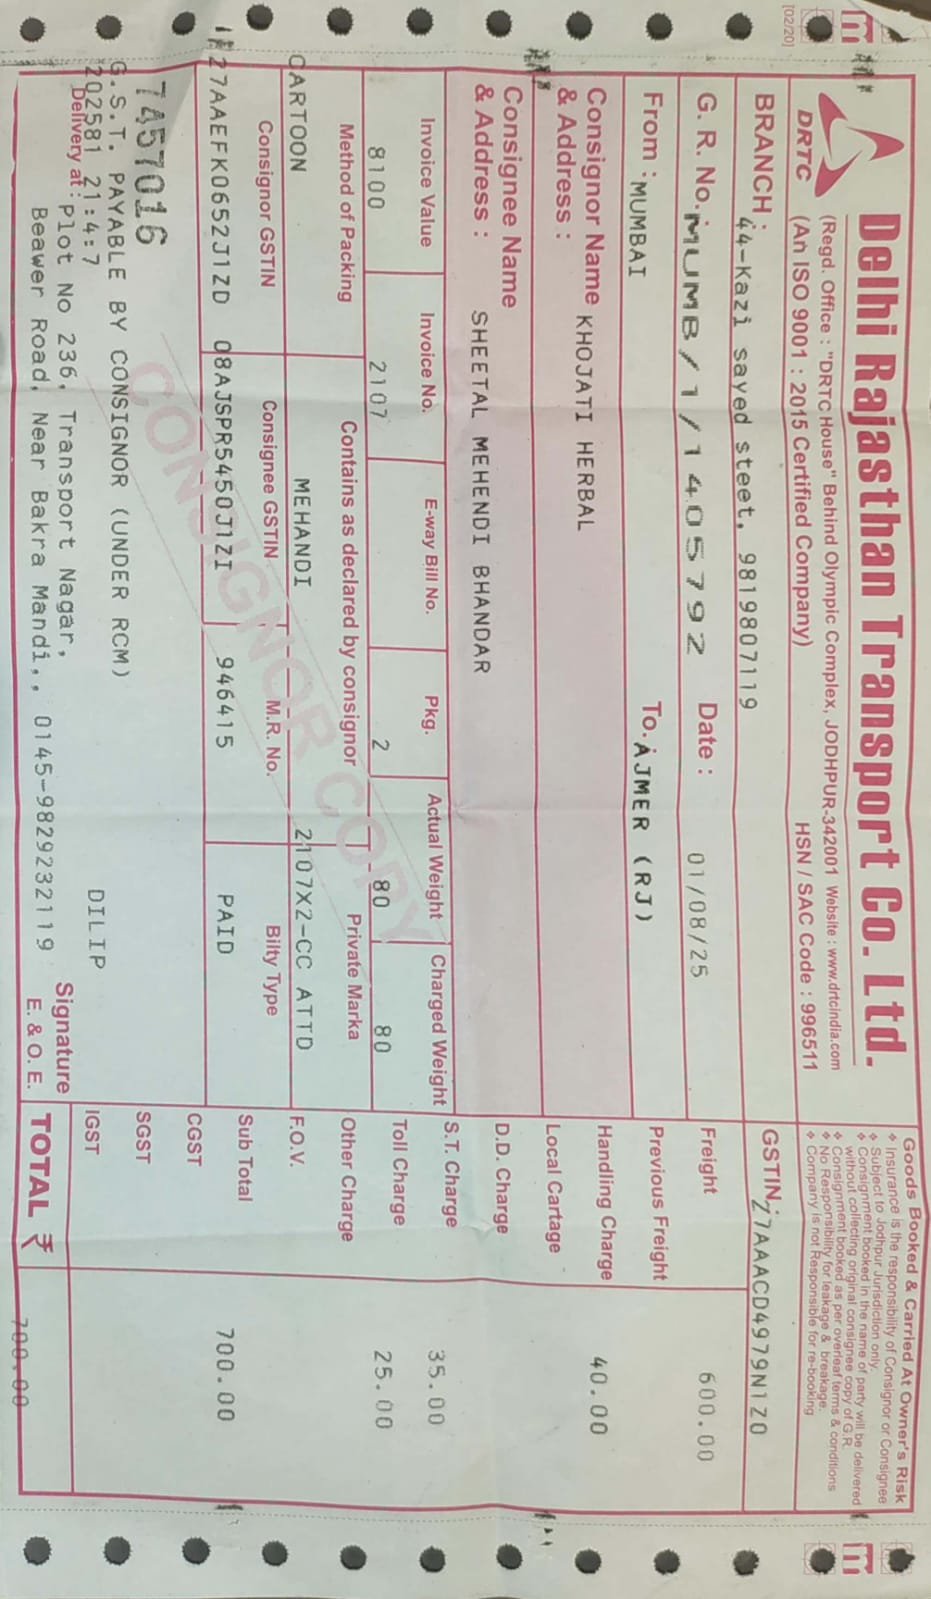 [02/20]
DRTC
Delhi Rajasthan Transport Co. Ltd.
(Regd. Office : "DRTC House" Behind Olympic Complex, JODHPUR-342001 Website : www.drtcindia.com
(An ISO 9001 : 2015 Certified Company)
HSN / SAC Code : 996511
Goods Booked & Carried At Owner's Risk
Insurance is the responsibility of Consignor or Consignee
Subject to Jodhpur Jurisdiction only.
Consignment booked in the name of party will be delivered
without collecting original consignee copy of G.R.
Consignment booked as per overleaf terms & conditions
No Responsibility for leakage & breakage.
Company is not Responsible for re-booking
BRANCH : 44-Kazi sayed steet, 9819807119
GSTIN : 27AAACD4979N1ZO
G. R. No. : MUMB/1/1405792 Date : 01/08/25
Freight 600.00
From : MUMBAI To. : AJMER (RJ)
Previous Freight
Consignor Name KHOJATI HERBAL
& Address :
Handling Charge 40.00
Local Cartage
Consignee Name
& Address : SHEETAL MEHENDI BHANDAR
D.D. Charge
S.T. Charge 35.00
Invoice Value Invoice No. E-way Bill No. Pkg. Actual Weight Charged Weight
8100 2107 2 80 80
Toll Charge 25.00
Method of Packing Contains as declared by consignor Private Marka
Other Charge
CARTOON MEHANDI 2107X2-CC ATTD
F.O.V.
Consignor GSTIN Consignee GSTIN M.R. No. Bilty Type
27AAEFK0652J1ZD 08AJSPR5450J1ZI 946415 PAID
Sub Total 700.00
CGST
SGST
IGST
CONSIGNOR COPY
7457016
G.S.T. PAYABLE BY CONSIGNOR (UNDER RCM)
202581 21:4:7 DILIP
Delivery at : Plot No 236, Transport Nagar,
Beawer Road, Near Bakra Mandi,, 0145-9829232119
Signature
E. & O. E.
TOTAL ₹ 700.00